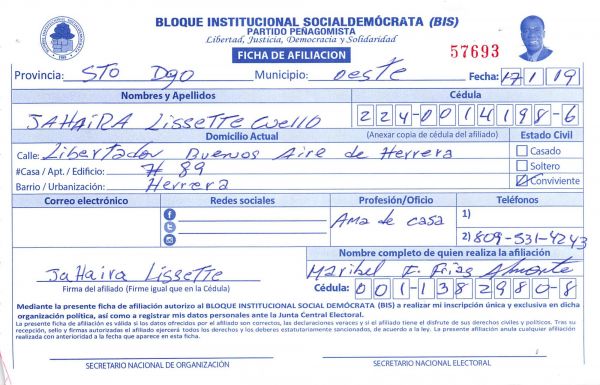 BLOQUE INSTITUCIONAL SOCIALDEMÓCRATA (BIS)
PARTIDO PEÑAGOMISTA
Libertad, Justicia, Democracia y Solidaridad
FICHA DE AFILIACION
57693
Provincia: STO Dgo Municipio: oeste Fecha: 17 1 19
Nombres y Apellidos Cédula
JAHAIRA Lissette Cuello 224-0014198-6
Domicilio Actual (Anexar copia de cédula del afiliado) Estado Civil
Calle: Libertador Buenos Aire de Herrera Casado
#Casa / Apt. / Edificio: # 89 Soltero
Barrio / Urbanización: Herrera Conviviente
Correo electrónico Redes sociales Profesión/Oficio Teléfonos
Ama de casa 1)
2) 809-531-4243
Nombre completo de quien realiza la afiliación
Jahaira Lissette Maribel F. Frias Almonte
Firma del afiliado (Firme igual que en la Cédula) Cédula: 001-1382980-8
Mediante la presente ficha de afiliación autorizo al BLOQUE INSTITUCIONAL SOCIAL DEMÓCRATA (BIS) a realizar mi inscripción única y exclusiva en dicha
organización política, así como a registrar mis datos personales ante la Junta Central Electoral.
La presente ficha de afiliación es válida si los datos ofrecidos por el afiliado son correctos, las declaraciones veraces y si el afiliado tiene el disfrute de sus derechos civiles y políticos. Tras su
recepción, sello y firmas autorizadas el afiliado ejercerá todos los derechos y los deberes estatutariamente sancionados, de acuerdo a la ley. La presente afiliación anula cualquier afiliación
realizada con anterioridad a la fecha que aparece en esta ficha.
SECRETARIO NACIONAL DE ORGANIZACIÓN SECRETARIO NACIONAL ELECTORAL